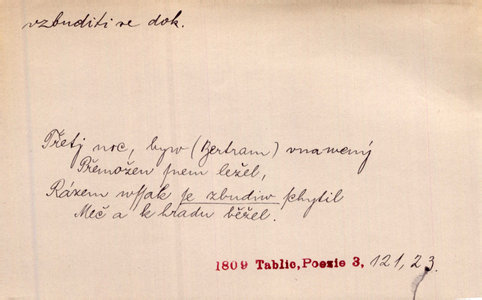 vzbuditi se dok.
Třetj noc, byw (Bertram) vnawený
Přemožen snem ležel,
Rázem wssak se zbudiw schytil
Meč a k hradu běžel.
1809 Tablic, Poezie 3, 121, 23.